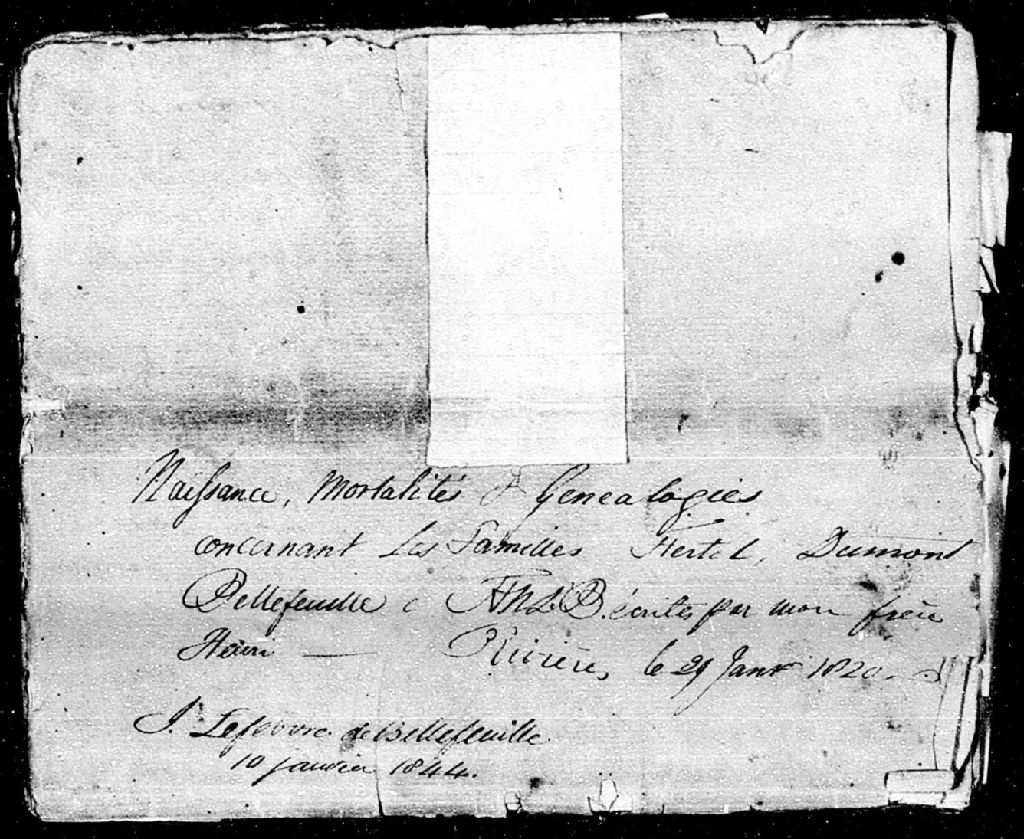 Naissance, Mortalités & Genealogies
concernant Les Familles Hertel, Dumont
Bellefeuille & écrites par mon frère
Henri — Rivières, le 29 Janr 1820
J. Lefebvre de Bellefeuille
10 janvier 1844.